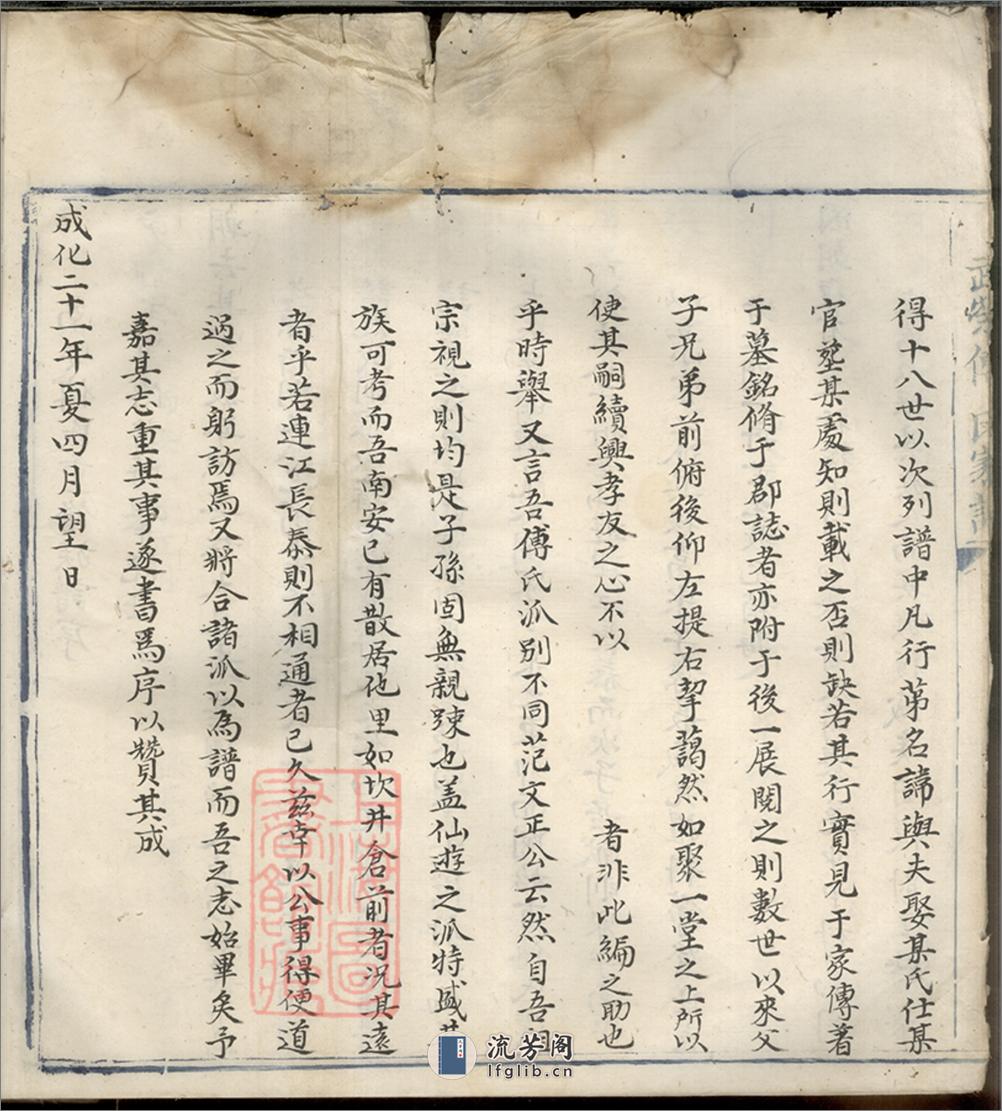 得十八世以次列譜中凡行苐名諱與夫娶某氏仕某
官塟某處知則載之否則缺若其行實見于家傳著
于墓銘脩于郡誌者亦附于後一展閱之則數世以來父
子兄弟前俯後仰左提右挈藹然如聚一堂之上所以
使其嗣續興孝友之心不以 者非此編之助也
乎時舉又言吾傅氏派别不同范文正公云然自吾祖
宗視之則均是子孫固無親踈也盖仙遊之派特盛
族可考而吾南安已有散居他里如坎井倉前者况其遠
者乎若連江長泰則不相通者已久兹幸以公事得便道
過之而躬訪焉又將合諸派以為譜而吾之志始畢矣予
嘉其志重其事遂書焉序以贊其成
成化二十一年夏四月望日
上海圖書館藏
流芳阁
lfglib.cn